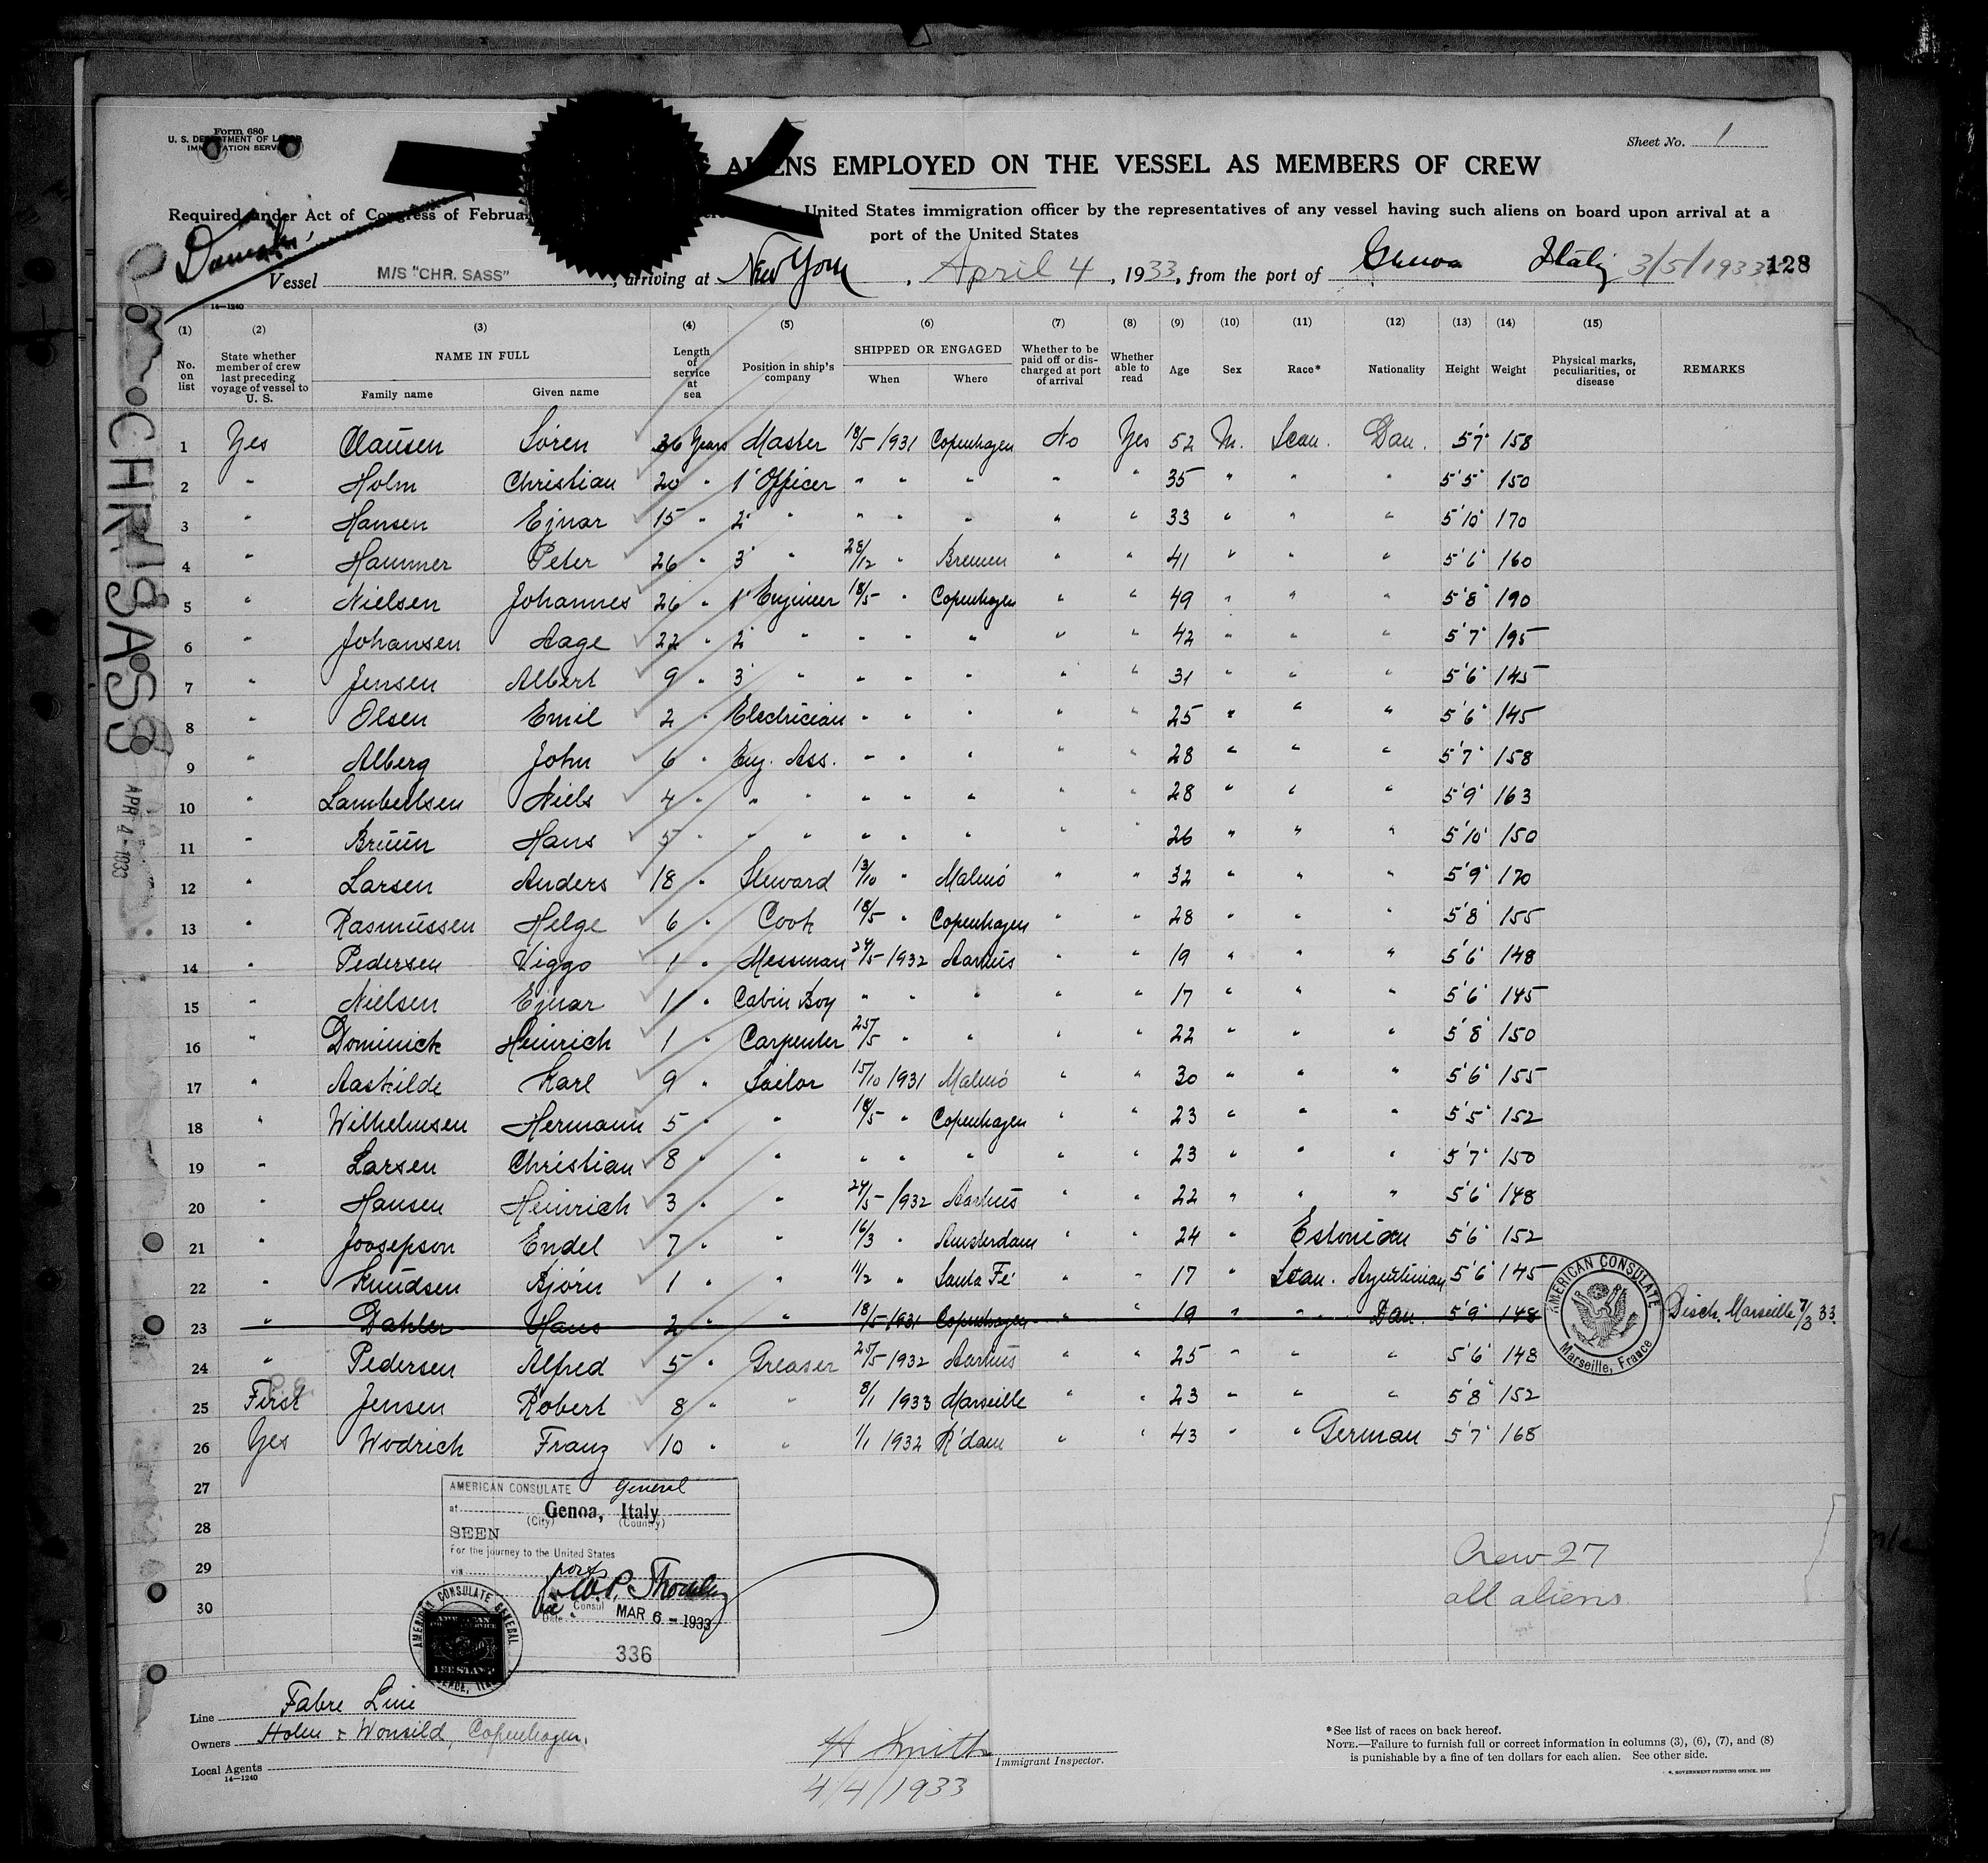 Form 680
U. S. DEPARTMENT OF LABOR
IMMIGRATION SERVICE
Sheet No. 1
ALIENS EMPLOYED ON THE VESSEL AS MEMBERS OF CREW
Required under Act of Congress of Februar United States immigration officer by the representatives of any vessel having such aliens on board upon arrival at a
port of the United States
Danish
Vessel M/S "CHR. SASS", arriving at New York, April 4, 1933, from the port of Genoa Italy 3/5/1933 128
14—1240
(1) (2) (3) (4) (5) (6) (7) (8) (9) (10) (11) (12) (13) (14) (15)
No. on list State whether member of crew last preceding voyage of vessel to U. S. NAME IN FULL Family name Given name Length of service at sea Position in ship's company SHIPPED OR ENGAGED When Where Whether to be paid off or discharged at port of arrival Whether able to read Age Sex Race* Nationality Height Weight Physical marks, peculiarities, or disease REMARKS
1 Yes Clausen Sören 36 Years Master 18/5 1931 Copenhagen No Yes 52 M. Scan. Dan. 5'7" 158
2 " Holm Christian 20 " 1' Officer " " " " " 35 " " " 5'5" 150
3 " Hansen Ejnar 15 " 2' " " " " " " 33 " " " 5'10" 170
4 " Hammer Peter 26 " 3' " 28/12 " Bremen " " 41 " " " 5'6" 160
5 " Nielsen Johannes 26 " 1' Engineer 18/5 " Copenhagen " " 49 " " " 5'8" 190
6 " Johansen Aage 22 " 2' " " " " " " 42 " " " 5'7" 195
7 " Jensen Albert 9 " 3' " " " " " " 31 " " " 5'6" 145
8 " Olsen Emil 2 " Electrician " " " " " 25 " " " 5'6" 145
9 " Alberg John 6 " Eng. Ass. " " " " " 28 " " " 5'7" 158
10 " Lambertsen Niels 4 " " " " " " " " 28 " " " 5'9" 163
11 " Bruün Hans 5 " " " " " " " " 26 " " " 5'10" 150
12 " Larsen Anders 18 " Steward 13/10 " Malmö " " 32 " " " 5'9" 170
13 " Rasmussen Helge 6 " Cook 18/5 " Copenhagen " " 28 " " " 5'8" 155
14 " Pedersen Viggo 1 " Messman 24/5 1932 Aarhus " " 19 " " " 5'6" 148
15 " Nielsen Ejnar 1 " Cabin Boy " " " " " 17 " " " 5'6" 145
16 " Dominick Heinrich 1 " Carpenter 25/5 " " " " 22 " " " 5'8" 150
17 " Aaskilde Karl 9 " Sailor 15/10 1931 Malmö " " 30 " " " 5'6" 155
18 " Wilhelmsen Hermann 5 " " 18/5 " Copenhagen " " 23 " " " 5'5" 152
19 " Larsen Christian 8 " " " " " " " 23 " " " 5'7" 150
20 " Hansen Heinrich 3 " " 24/5 1932 Aarhus " " 22 " " " 5'6" 148
21 " Joosepson Endel 7 " " 16/3 " Amsterdam " " 24 " Estonian 5'6" 152
22 " Knudsen Björn 1 " " 11/2 " Santa Fé " " 17 " Scan. Argentinian 5'6" 145
23 " Dahler Hans 2 " " 18/5 1931 Copenhagen " " 19 " " Dan. 5'9" 148 Disch. Marseille 7/3 33.
24 " Pedersen Alfred 5 " Greaser 25/5 1932 Aarhus " " 25 " " " 5'6" 148
25 First Jensen Robert 8 " " 8/1 1933 Marseille " " 23 " " " 5'8" 152
26 Yes Wodrich Franz 10 " " 1/1 1932 R'dam " " 43 " " German 5'7" 168
27
28
29
30
AMERICAN CONSULATE
Marseille, France
CHR. SASS
APR 4 - 1933
AMERICAN CONSULATE General
at Genoa, Italy
(City) (Country)
SEEN
For the journey to the United States
via ports
Consul
Date MAR 6 - 1933
336
AMERICAN CONSULATE GENERAL
FEE STAMP
GENOA, ITALY
Crew 27
all aliens
Line Fabre Line
Owners Holm & Wonsild, Copenhagen.
Local Agents
14—1240
H Smith Immigrant Inspector.
4/4/1933
*See list of races on back hereof.
NOTE.—Failure to furnish full or correct information in columns (3), (6), (7), and (8)
is punishable by a fine of ten dollars for each alien. See other side.
GOVERNMENT PRINTING OFFICE